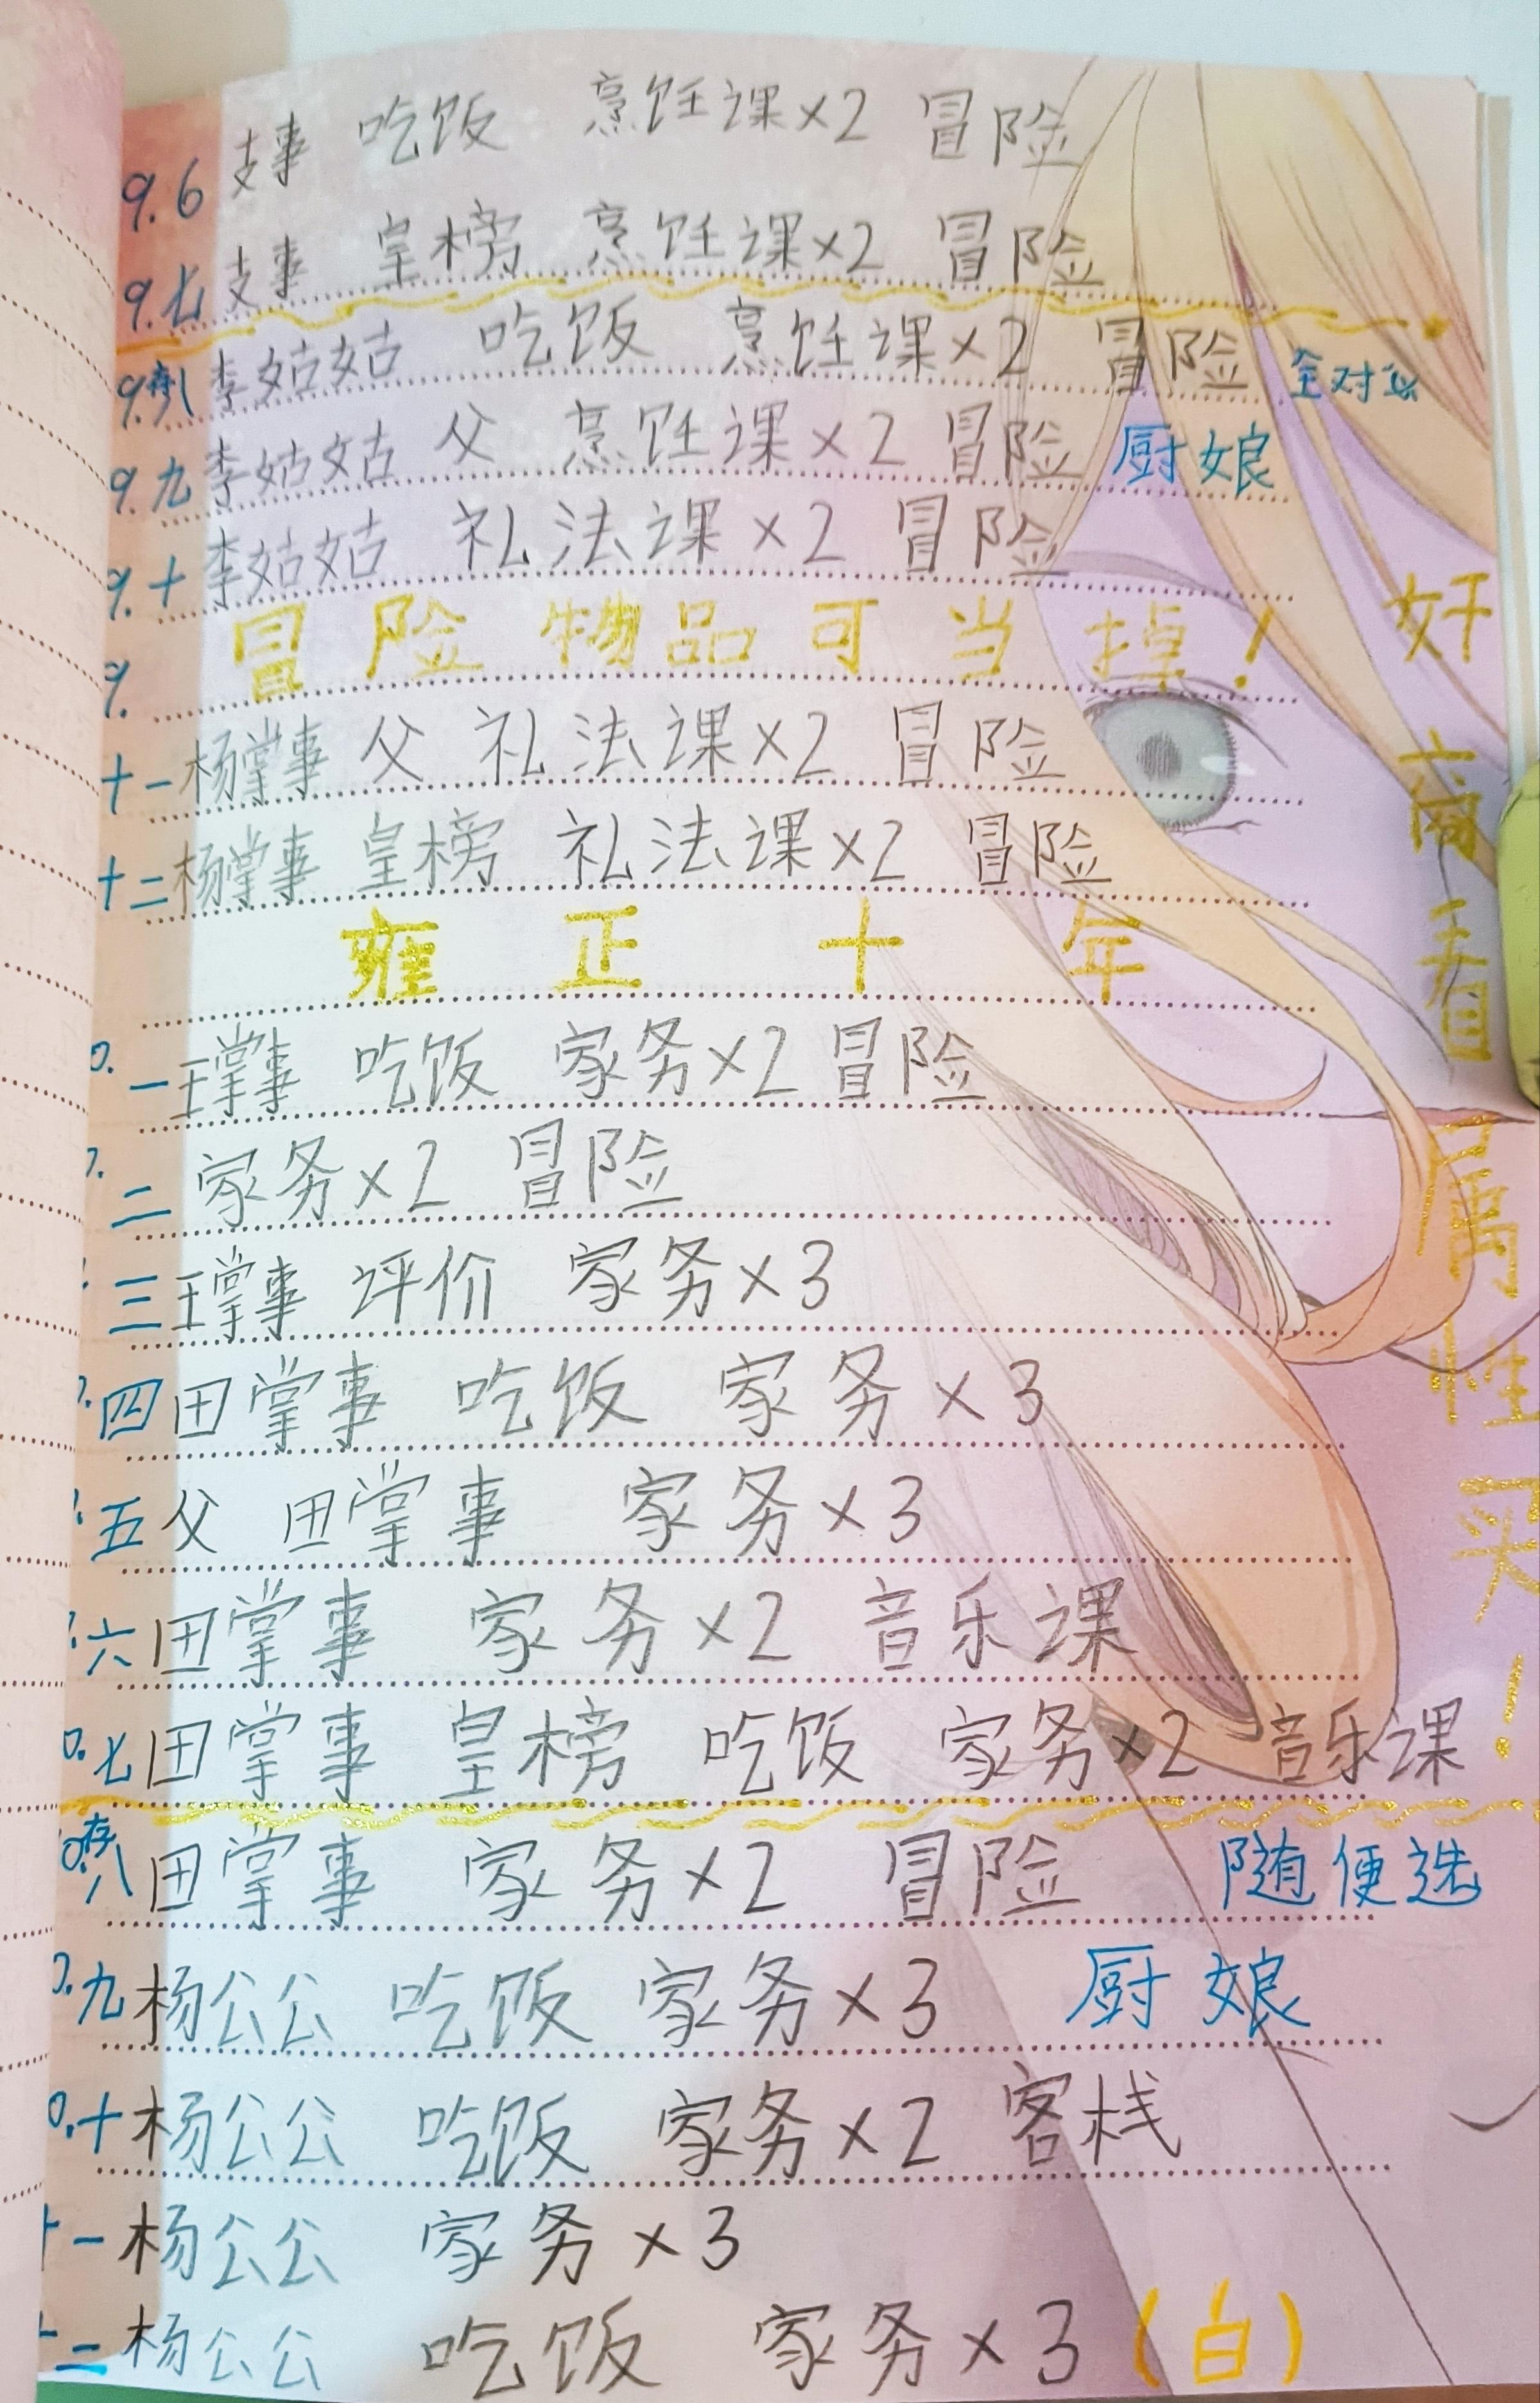 9.6 支事 吃饭 烹饪课×2 冒险
9.七 支事 皇榜 烹饪课×2 冒险
9.存八 李姑姑 吃饭 烹饪课×2 冒险 全对
9.九 李姑姑 父 烹饪课×2 冒险 厨娘
9.十 李姑姑 礼法课×2 冒险
9. 冒险物品可当掉!
十一 杨掌事 父 礼法课×2 冒险
十二 杨掌事 皇榜 礼法课×2 冒险
雍正十年
0.一 王掌事 吃饭 家务×2 冒险
二 家务×2 冒险
三 王掌事 评价 家务×3
四 田掌事 吃饭 家务×3
五 父 田掌事 家务×3
六 田掌事 家务×2 音乐课
0.七 田掌事 皇榜 吃饭 家务×2 音乐课
0.存八 田掌事 家务×2 冒险 随便选
0.九 杨公公 吃饭 家务×3 厨娘
0.十 杨公公 吃饭 家务×2 客栈
十一 杨公公 家务×3
十二 杨公公 吃饭 家务×3(白)
奸商看
性买!